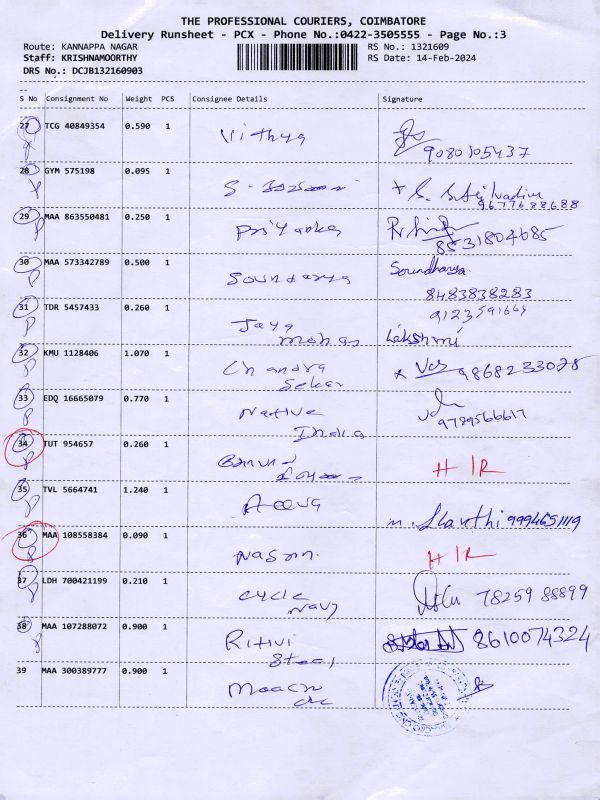 THE PROFESSIONAL COURIERS, COIMBATORE
Delivery Runsheet - PCX - Phone No.:0422-3505555 - Page No.:3
Route: KANNAPPA NAGAR RS No.: 1321609
Staff: KRISHNAMOORTHY RS Date: 14-Feb-2024
DRS No.: DCJB132160903
S No Consignment No Weight PCS Consignee Details Signature
27 TCG 40849354 0.590 1 Vithya
9080105437
28 GYM 575198 0.095 1 S.
9677688688
29 MAA 863550481 0.250 1 Priyanka
8531804685
30 MAA 573342789 0.500 1 Soundarya Soundharya
8483838283
31 TDR 5457433 0.260 1 Jaya 9123591664
mohan Lakshmi
32 KMU 1128406 1.070 1 Chandra 9868233028
Sekar
33 EDQ 16665079 0.770 1 Native
India 9789566617
34 TUT 954657 0.260 1 H IR
35 TVL 5664741 1.240 1
m. Shanthi 9994651119
36 MAA 108558384 0.090 1 H IR
37 LDH 700421199 0.210 1 Cycle 78259 88899
Navy
38 MAA 107288072 0.900 1 Rithvi 8610074324
Steel
39 MAA 300389777 0.900 1